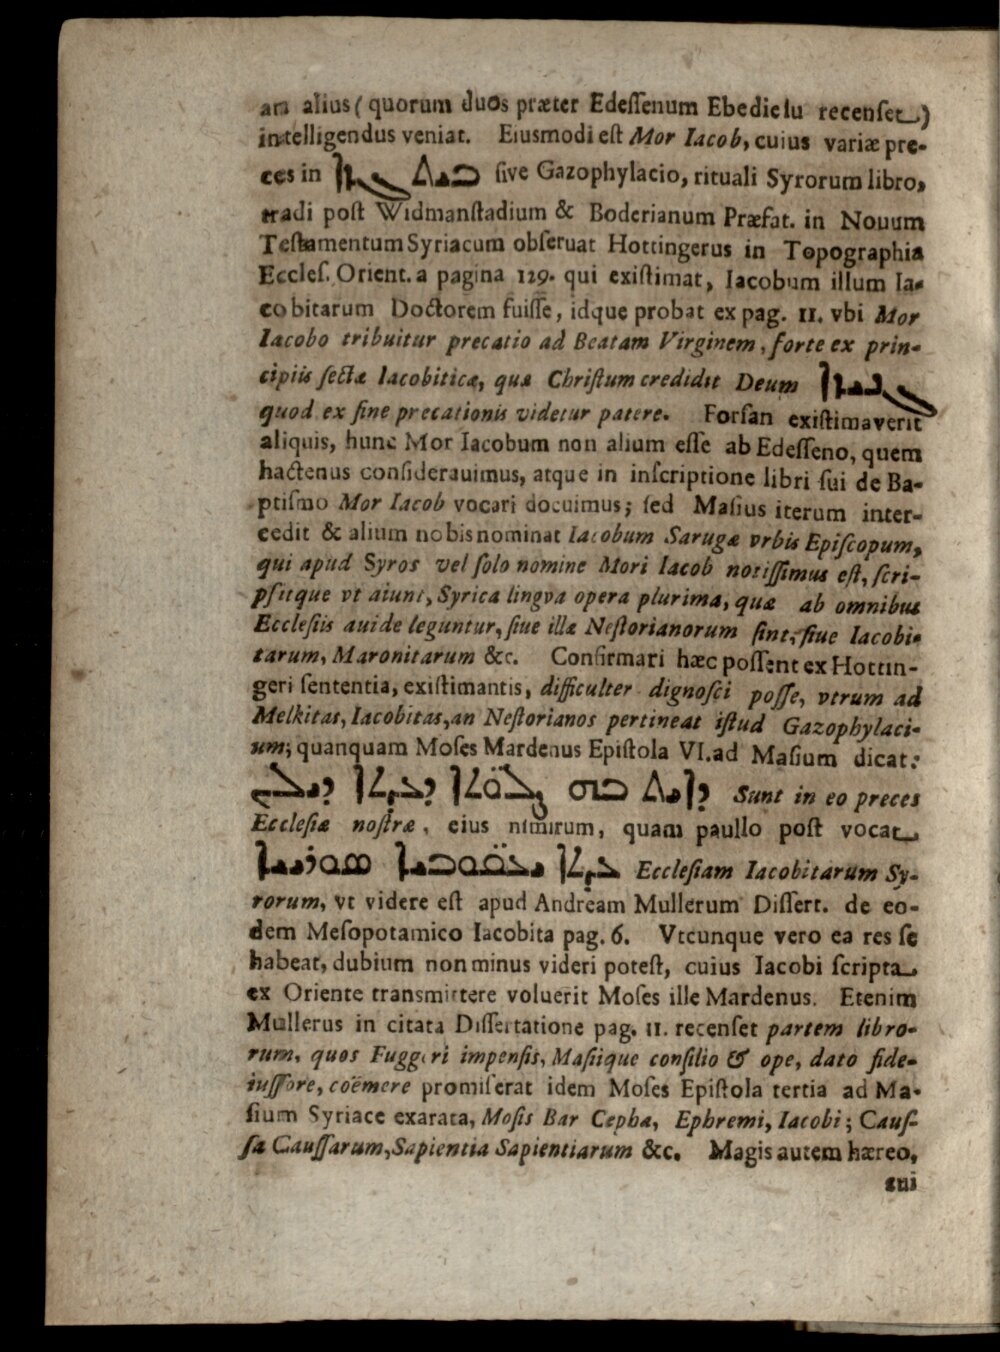 an alius (quorum duos præter Edessenum Ebediesu recenset)
intelligendus veniat. Eiusmodi est Mor Iacob, cuius variæ pre-
ces in ܒܝܬ ܓܙܐ sive Gazophylacio, rituali Syrorum libro,
tradi post Widmanstadium & Boderianum Præfat. in Nouum
Testamentum Syriacum obseruat Hottingerus in Topographia
Eccles. Orient. a pagina 129. qui existimat, Iacobum illum Ia-
cobitarum Doctorem fuisse, idque probat ex pag. 11. vbi Mor
Iacobo tribuitur precatio ad Beatam Virginem, forte ex prin-
cipiis sectæ Iacobiticæ, quæ Christum credidit Deum
quod ex fine precationis videtur patere. Forsan existimaverit
aliquis, hunc Mor Iacobum non alium esse ab Edesseno, quem
hactenus considerauimus, atque in inscriptione libri sui de Ba-
ptismo Mor Iacob vocari docuimus; sed Masius iterum inter-
cedit & alium nobis nominat Iacobum Sarugæ vrbis Episcopum,
qui apud Syros vel solo nomine Mori Iacob notissimus est, scri-
psitque vt aiunt, Syrica lingva opera plurima, quæ ab omnibus
Ecclesiis auide leguntur, siue illæ Nestorianorum sint, siue Iacobi-
tarum, Maronitarum &c. Confirmari hæc possent ex Hottin-
geri sententia, existimantis, difficulter dignosci posse, vtrum ad
Melkitas, Iacobitas, an Nestorianos pertineat istud Gazophylaci-
um; quanquam Moses Mardenus Epistola VI. ad Masium dicat:
ܕܐܝܬ ܒܗ ܨܠܘ̈ܬܐ ܕܥܕܬܐ ܕܝܠܢ Sunt in eo preces
Ecclesiæ nostræ, eius nimirum, quam paullo post vocat
ܥܕܬܐ ܝܥܩܘ̈ܒܝܐ ܣܘܪ̈ܝܝܐ Ecclesiam Iacobitarum Sy-
rorum, vt videre est apud Andream Mullerum Dissert. de eo-
dem Mesopotamico Iacobita pag. 6. Vtcunque vero ea res se
habeat, dubium non minus videri potest, cuius Iacobi scripta
ex Oriente transmittere voluerit Moses ille Mardenus. Etenim
Mullerus in citata Dissertatione pag. 11. recenset partem libro-
rum, quos Fuggeri impensis, Masiique consilio & ope, dato fide-
iussore, coëmere promiserat idem Moses Epistola tertia ad Ma-
sium Syriace exarata, Mosis Bar Cepha, Ephremi, Iacobi; Caus-
sa Caussarum, Sapientia Sapientiarum &c. Magis autem hæreo,
cui